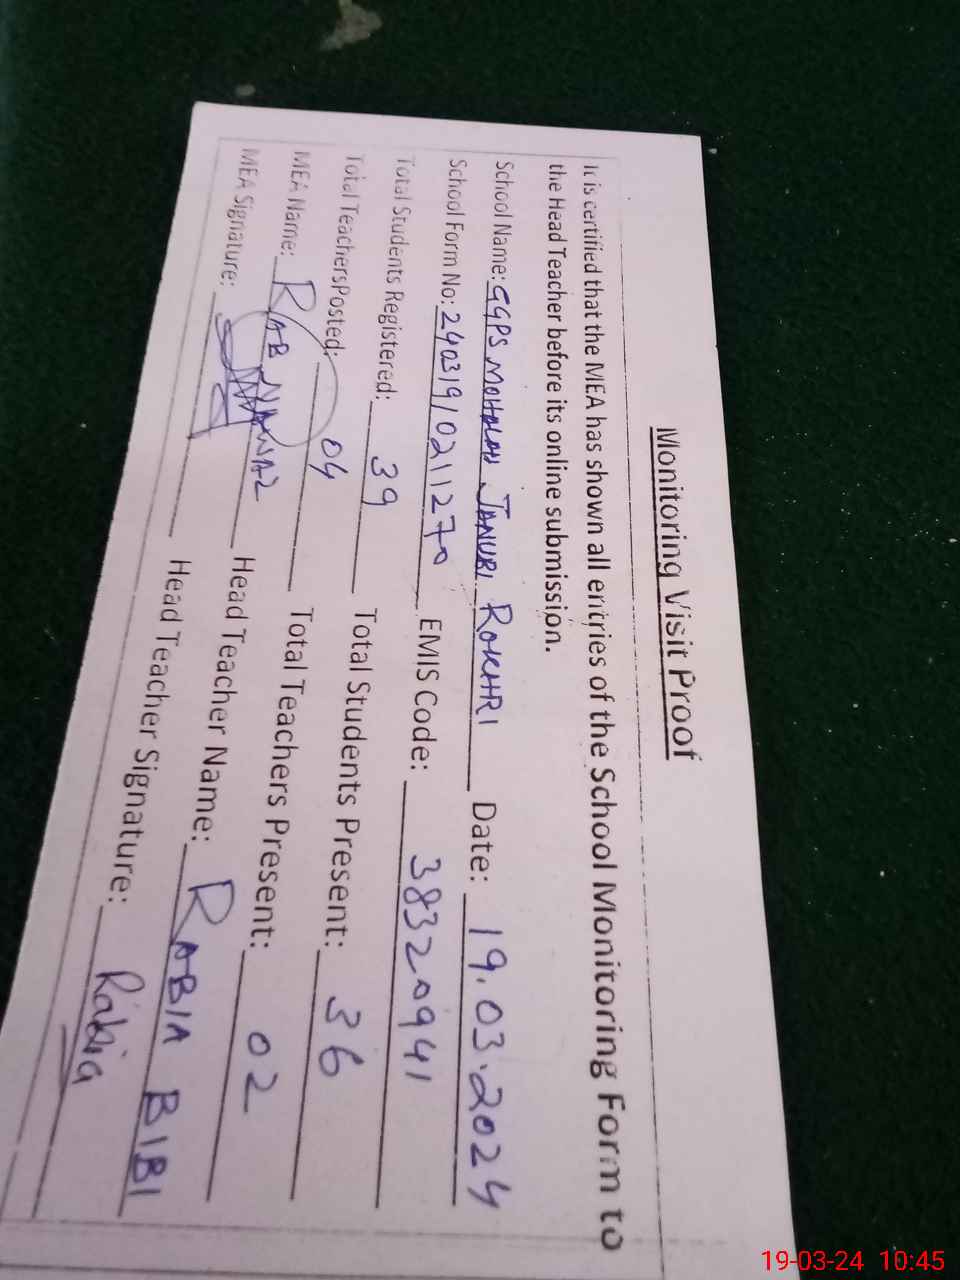 Monitoring Visit Proof
It is certified that the MEA has shown all entries of the School Monitoring Form to
the Head Teacher before its online submission.
School Name: GGPS MOHALAH JANUBI ROKHRI Date: 19.03.2024
School Form No: 24031910211270 EMIS Code: 38320941
Total Students Registered: 39 Total Students Present: 36
Total Teachers Posted: 04 Total Teachers Present: 02
MEA Name: RAB NAWAZ Head Teacher Name: RABIA BIBI
MEA Signature: Head Teacher Signature: Rabia
19-03-24 10:45